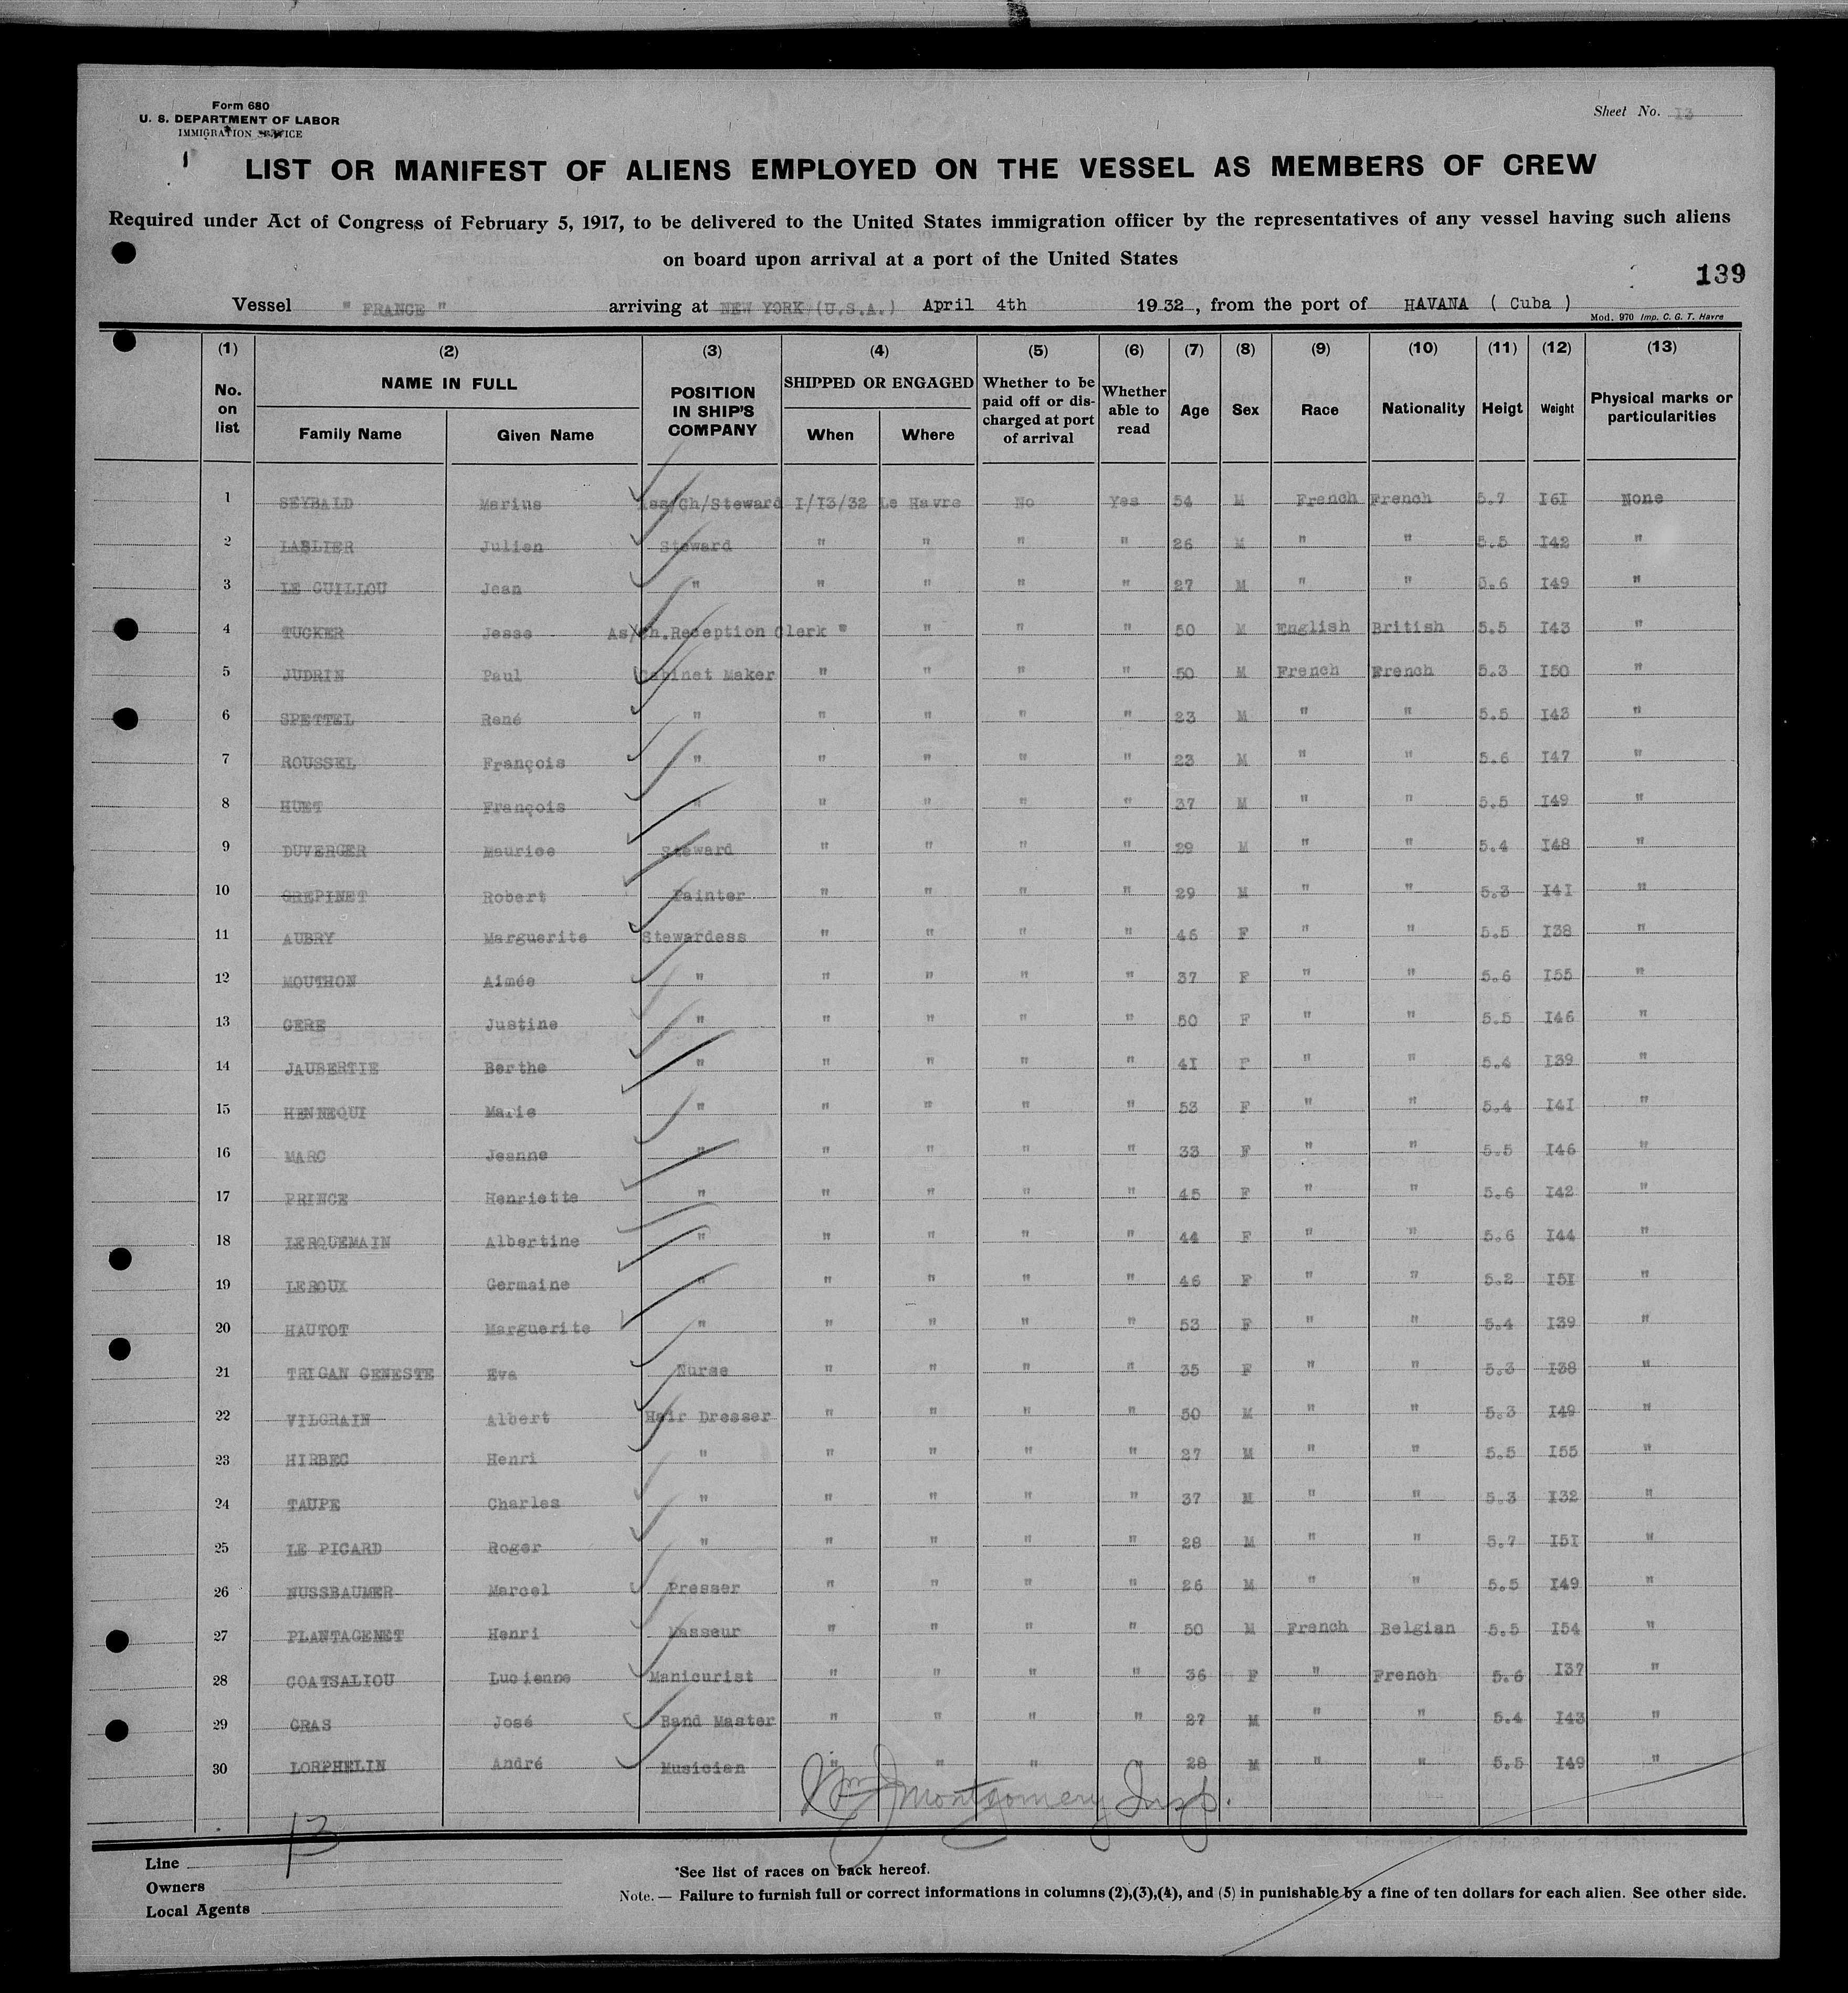 Form 680
U. S. DEPARTMENT OF LABOR
IMMIGRATION SERVICE
Sheet No. I3
LIST OR MANIFEST OF ALIENS EMPLOYED ON THE VESSEL AS MEMBERS OF CREW
Required under Act of Congress of February 5, 1917, to be delivered to the United States immigration officer by the representatives of any vessel having such aliens
on board upon arrival at a port of the United States
139
Vessel " FRANCE " arriving at NEW YORK (U.S.A.) April 4th 1932, from the port of HAVANA ( Cuba )
Mod. 970 Imp. C. G. T. Havre
(1) (2) (3) (4) (5) (6) (7) (8) (9) (10) (11) (12) (13)
No. on list NAME IN FULL Family Name Given Name POSITION IN SHIP'S COMPANY SHIPPED OR ENGAGED When Where Whether to be paid off or discharged at port of arrival Whether able to read Age Sex Race Nationality Heigt Weight Physical marks or particularities
1 SEYBALD Marius Ass/Ch/Steward I/I3/32 Le Havre No Yes 54 M French French 5.7 I6I None
2 LABLIER Julien Steward " " " " 26 M " " 5.5 I42 "
3 LE GUILLOU Jean " " " " " 27 M " " 5.6 I49 "
4 TUCKER Jesse As/Ch.Reception Clerk " " " " 50 M English British 5.5 I43 "
5 JUDRIN Paul Cabinet Maker " " " " 50 M French French 5.3 I50 "
6 SPETTEL René " " " " " 23 M " " 5.5 I43 "
7 ROUSSEL François " " " " " 23 M " " 5.6 I47 "
8 HUET François " " " " " 37 M " " 5.5 I49 "
9 DUVERGER Maurice Steward " " " " 29 M " " 5.4 I48 "
10 GREPINET Robert Painter " " " " 29 M " " 5.3 I4I "
11 AUBRY Marguerite Stewardess " " " " 46 F " " 5.5 I38 "
12 MOUTHON Aimée " " " " " 37 F " " 5.6 I55 "
13 GERE Justine " " " " " 50 F " " 5.5 I46 "
14 JAUBERTIE Berthe " " " " " 4I F " " 5.4 I39 "
15 HENNEQUI Marie " " " " " 53 F " " 5.4 I4I "
16 MARC Jeanne " " " " " 33 F " " 5.5 I46 "
17 PRINCE Henriette " " " " " 45 F " " 5.6 I42 "
18 LERQUEMAIN Albertine " " " " " 44 F " " 5.6 I44 "
19 LEROUX Germaine " " " " " 46 F " " 5.2 I5I "
20 HAUTOT Marguerite " " " " " 53 F " " 5.4 I39 "
21 TRIGAN GENESTE Eva Nurse " " " " 35 F " " 5.3 I38 "
22 VILGRAIN Albert Hair Dresser " " " " 50 M " " 5.3 I49 "
23 HIRBEC Henri " " " " " 27 M " " 5.5 I55 "
24 TAUPE Charles " " " " " 37 M " " 5.3 I32 "
25 LE PICARD Roger " " " " " 28 M " " 5.7 I5I "
26 NUSSBAUMER Marcel Presser " " " " 26 M " " 5.5 I49 "
27 PLANTAGENET Henri Masseur " " " " 50 M French Belgian 5.5 I54 "
28 COATSALIOU Lucienne Manicurist " " " " 36 F " French 5.6 I37 "
29 GRAS José Band Master " " " " 27 M " " 5.4 I43 "
30 LORPHELIN André Musicien " " " " 28 M " " 5.5 I49 "
Wm J Montgomery Insp.
13
Line
Owners
Local Agents
*See list of races on back hereof.
Note. — Failure to furnish full or correct informations in columns (2),(3),(4), and (5) in punishable by a fine of ten dollars for each alien. See other side.